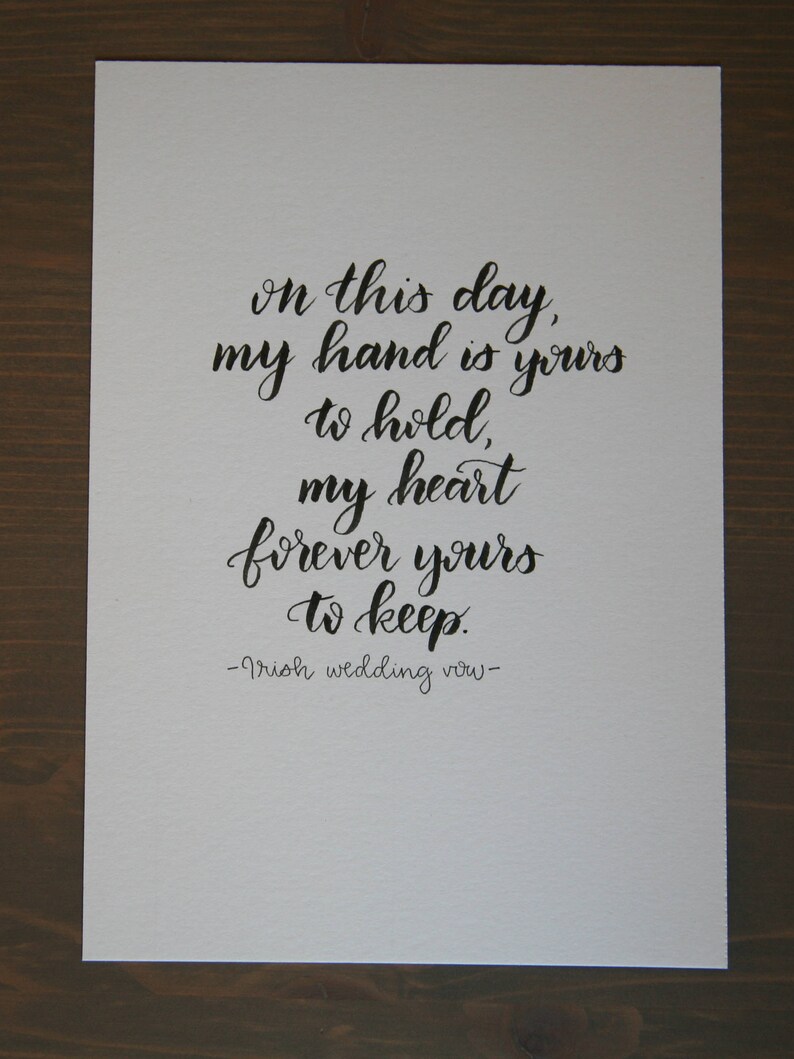 on this day,
my hand is yours
to hold,
my heart
forever yours
to keep.
-Irish wedding vow-